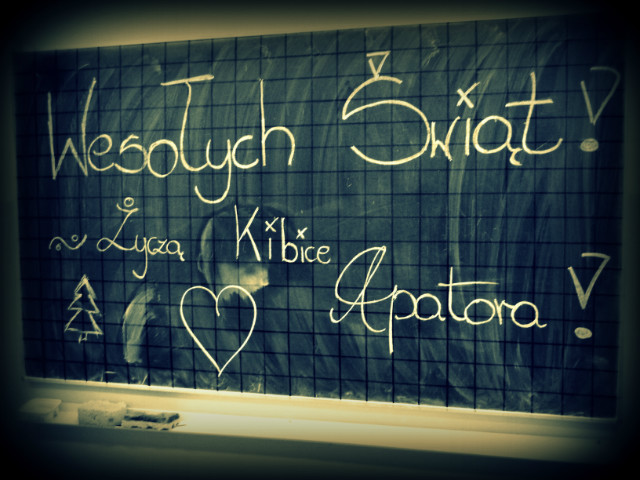 Wesołych Świąt!
Życzą Kibice
Apatora!